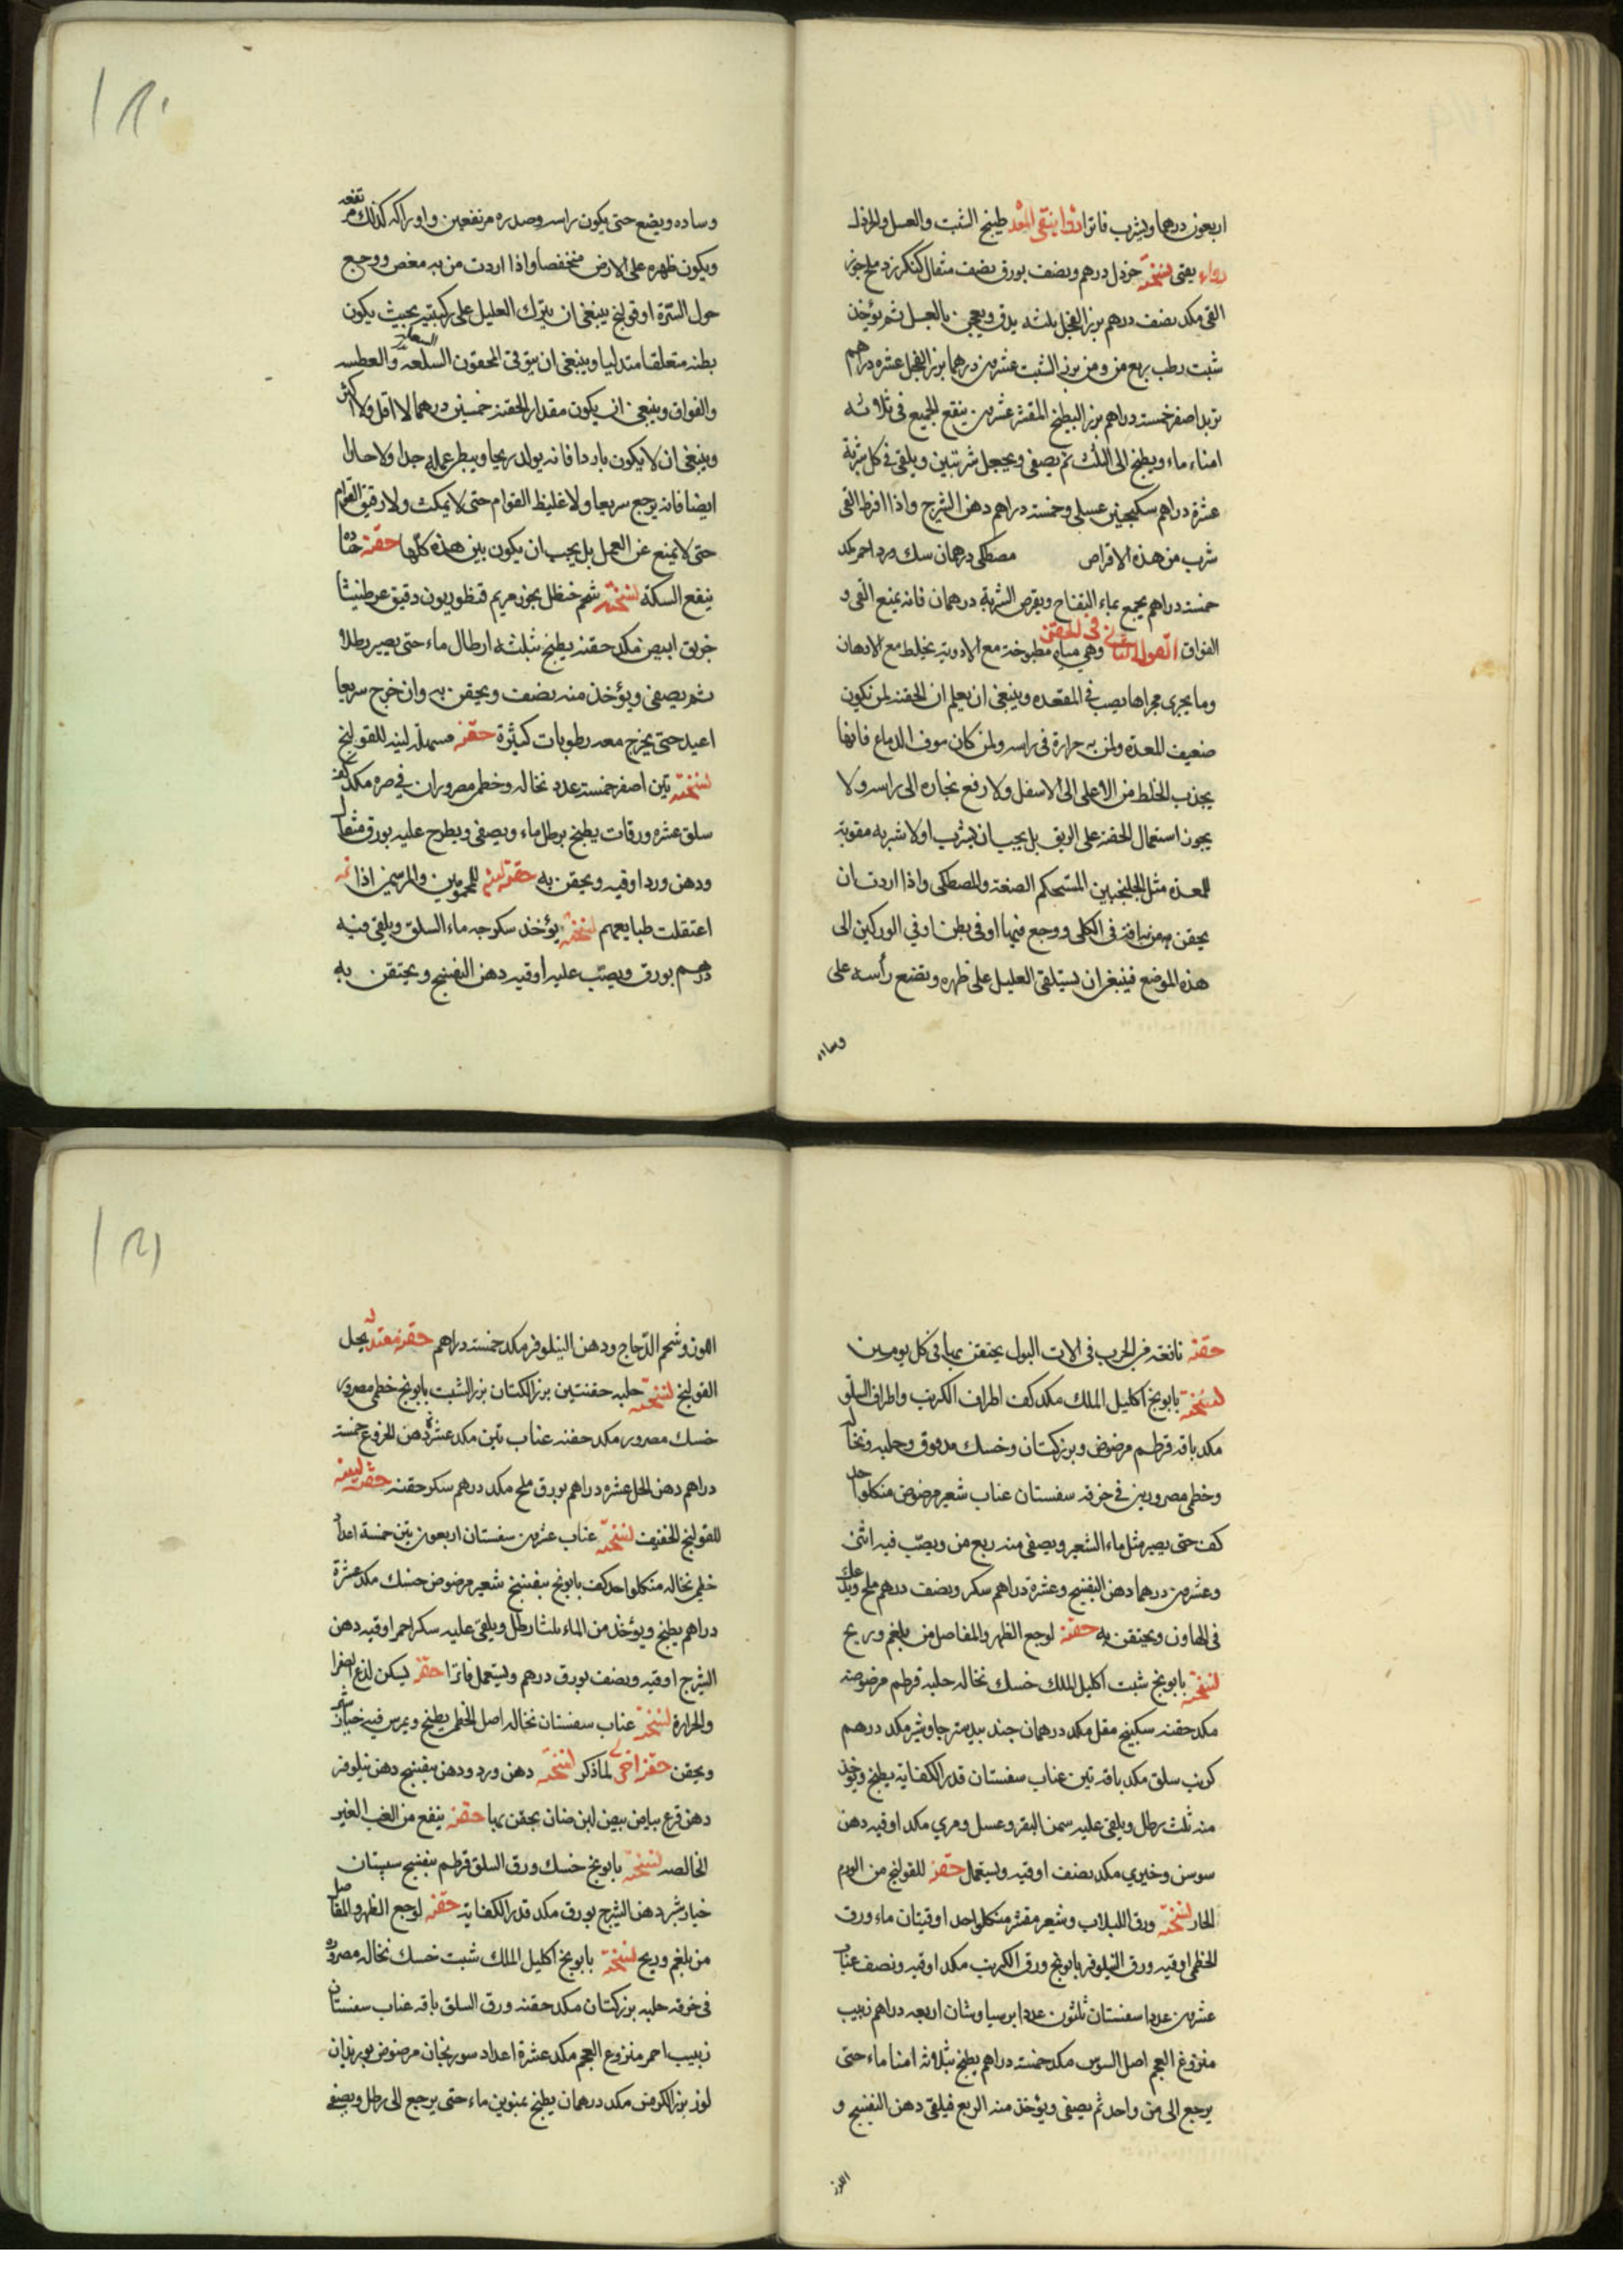 اربعون درهما ويشرب فاترا دوا ينقى المعدة طبيخ الشبت والعسل والخردل
دواء يقئى نسخته خردل درهم ونصف بورق نصف مثقال كنكرزد ملح جوز
القى مكد نصف درهم بزر الفجل بلثه يدق ويعجن بالعسل ثم يؤخذ
شبت رطب ربع من ومن بزر الشبت عشرين درهما بزر الفجل عشره دراهم
تربد اصفر خمسته دراهم بزر البطيخ المقشر عشرين ينقع الجميع فى ثلاثه
امناء ماء ويطبخ الى الثلث ثم يصفى ويجعل شربتين ويلقى فى كل شربة
عشرة دراهم سكنجبين عسلى وخمسته دراهم دهن الشيرج واذا افرط القى
شرب من هذه الاقراص مصطكى درهمان سك ورد احمر مكد
خمسته دراهم يجمع بماء التفاح ويقرص الشربة درهمان فانه يمنع القى و
الفواق القول الثانى فى الحقن وهى مياه مطبوخة مع الادوية يخلط مع الادهان
وما يجرى مجراها يصب فى المقعده وينبغى ان يعلم ان الحقنه لمن تكون
ضعيف المعدة ولمن به حرارة فى راسه ولمن كان موف الدماغ فانها
يجذب الخلط من الاعلى الى الاسفل ولا رفع بخاره الى راسه ولا
يجوز استعمال الحقنه على الريق بل يجب ان يشرب اولا شربه مقوية
للمعده مثل الجلنجبين المستحكم الصنعة والمصطكى واذا اردت ان
يحقن من به افة فى الكلى ووجع فيها او فى بطن او فى الوركين الى
هذه الموضع فينبغى ان يستلقى العليل على ظهره وتضع رأسه على
وساده
وساده ويضع حتى يكون راسه وصدره مرتفعين واوراكه كذلك مرتفعه
ويكون ظهره على الارض منخفضا واذا اردت من به مغص ووجع
حول السرة او قولنج ينبغى ان يترك العليل على ركبتيه بحيث يكون
بطنه متعلقا متدليا وينبغى ان يتوقى المحقون السلعه والعطسه
السعال
والفواق وينبغى ان يكون مقدار الحقنه خمسين درهما لا اقل ولا اكثر
وينبغى ان لا يكون باردا فانه يولد ريحا ويبطر عمله جدا ولا حارا
ايضا فانه يرجع سريعا ولا غليظ القوام حتى لا يمكث ولا رقيق القوام
حتى لا يمنع عن العمل بل يجب ان يكون بين هذه كلها حقنه حاده
ينفع السكته نسخته شحم حنظل بخور مريم قنطوريون دقيق عرطنيثا
خربق ابيض مكد حقنه يطبخ بثلثه ارطال ماء حتى يصير رطلا
ثم يصفى ويؤخذ منه نصف ويحقن به وان خرج سريعا
اعيد حتى يخرج معه رطوبات كثيرة حقنه مسهله لينه للقولنج
نسخته تين اصفر خمسته عدد نخاله وخطمى مصروران فى صره مكد كف
سلق عشره ورقات يطبخ برطل ماء ويصفى ويطرح عليه بورق مثقال
ودهن ورد اوقيه ويحقن به حقنه لينه للمحمومين والمبرسمين اذا
اعتقلت طبايعهم نسخته يؤخذ سكرجه ماء السلق ويلقى فيه
درهم بورق ويصب عليه اوقيه دهن البنفسج ويحتقن به
حقنه نافعه من الجرب فى الات البول يحتقن بها فى كل يومين
نسخته بابونج اكليل الملك مكد كف اطراف الكرنب واطراف السلق
مكد باقه قرطم مرضوض وبزر كتان وخسك مدقوق وحلبه ونخاله
وخطمى مصرورين فى خرقه سفستان عناب شعير مرضوض من كل واحد
كف حتى يصير مثل ماء الشعير ويصفى منه ربع من ويصب فيه اثنى
وعشرين درهما دهن البنفسج وعشرة دراهم سكر ونصف درهم ملح ويدلك
فى الهاون ويحتقن به حقنه لوجع الظهر والمفاصل من بلغم وريح
نسخته بابونج شبت اكليل الملك خسك نخاله حلبه قرطم مرضوضه
مكد حفنه سكبينج مقل مكد درهمان جند بيدستر جاوشير مكد درهم
كرنب سلق مكد باقه تين عناب سفستان قدر الكفاية يطبخ ويؤخذ
منه ثلث رطل ويلقى عليه سمن البقر وعسل ومرى مكد اوقيه دهن
سوسن وخيرى مكد نصف اوقيه ويستعمل حقنه للقولنج من الورم
الحار نسخته ورق اللبلاب وشعير مقشر من كل واحد اوقيتان ماء ورق
الخطمى اوقيه ورق النيلوفر بابونج ورق الكرنب مكد اوقيه ونصف عناب
عشرين عددا سفستان ثلثون عددا برسياوشان اربعه دراهم زبيب
منزوع العجم اصل السوس مكد خمسته دراهم يطبخ بثلاثه امنا ماء حتى
يرجع الى من واحد ثم يصفى ويؤخذ منه الربع فيلقى دهن البنفسج و
اللوز وشحم الدجاج ودهن النيلوفر مكد خمسته دراهم حقنه معتدله يحل
القولنج نسخته حلبه حفنتين بزر الكتان بزر الشبت بابونج خطمى مصرور
خسك مصرور مكد حفنه عناب تين مكد عشرة دهن الخروع خمسته
دراهم دهن الخل عشره دراهم بورق ملح مكد درهم سكر حفنه حقنه لينه
للقولنج الخفيف نسخته عناب عشرين سفستان اربعون تين خمسة اعداد
خطمى نخاله من كل واحد كف بابونج بنفسج شعير مرضوض خسك مكد عشرة
دراهم يطبخ ويؤخذ من الماء ثلثا رطل ويلقى عليه سكر احمر اوقيه دهن
الشيرج اوقيه ونصف بورق درهم ويستعمل فاترا حقنه يسكن لذع الصفرا
والحرارة نسخته عناب سفستان نخاله اصل الخطمى يطبخ ويمرس فيه خيار شنبر
ويحقن حقنه اخرى لما ذكر نسخته دهن ورد ودهن بنفسج دهن نيلوفر
دهن قرع بياض بيض لبن ضان يحقن بها حقنه ينفع من الغب الغير
الخالصه نسخته بابونج خسك ورق السلق قرطم بنفسج سبستان
خيار شنبر دهن الشيرج بورق مكد قدر الكفاية حقنه لوجع الظهر والمفاصل
من بلغم وريح نسخته بابونج اكليل الملك شبت خسك نخاله مصروره
فى خرقه حلبه بزر كتان مكد حفنه ورق السلق باقه عناب سفستان
زبيب احمر منزوع العجم مكد عشرة اعداد سورنجان مرضوض بوزيدان
لوز بزر الكرفس مكد درهمان يطبخ بمنوين ماء حتى يرجع الى رطل ويصفى